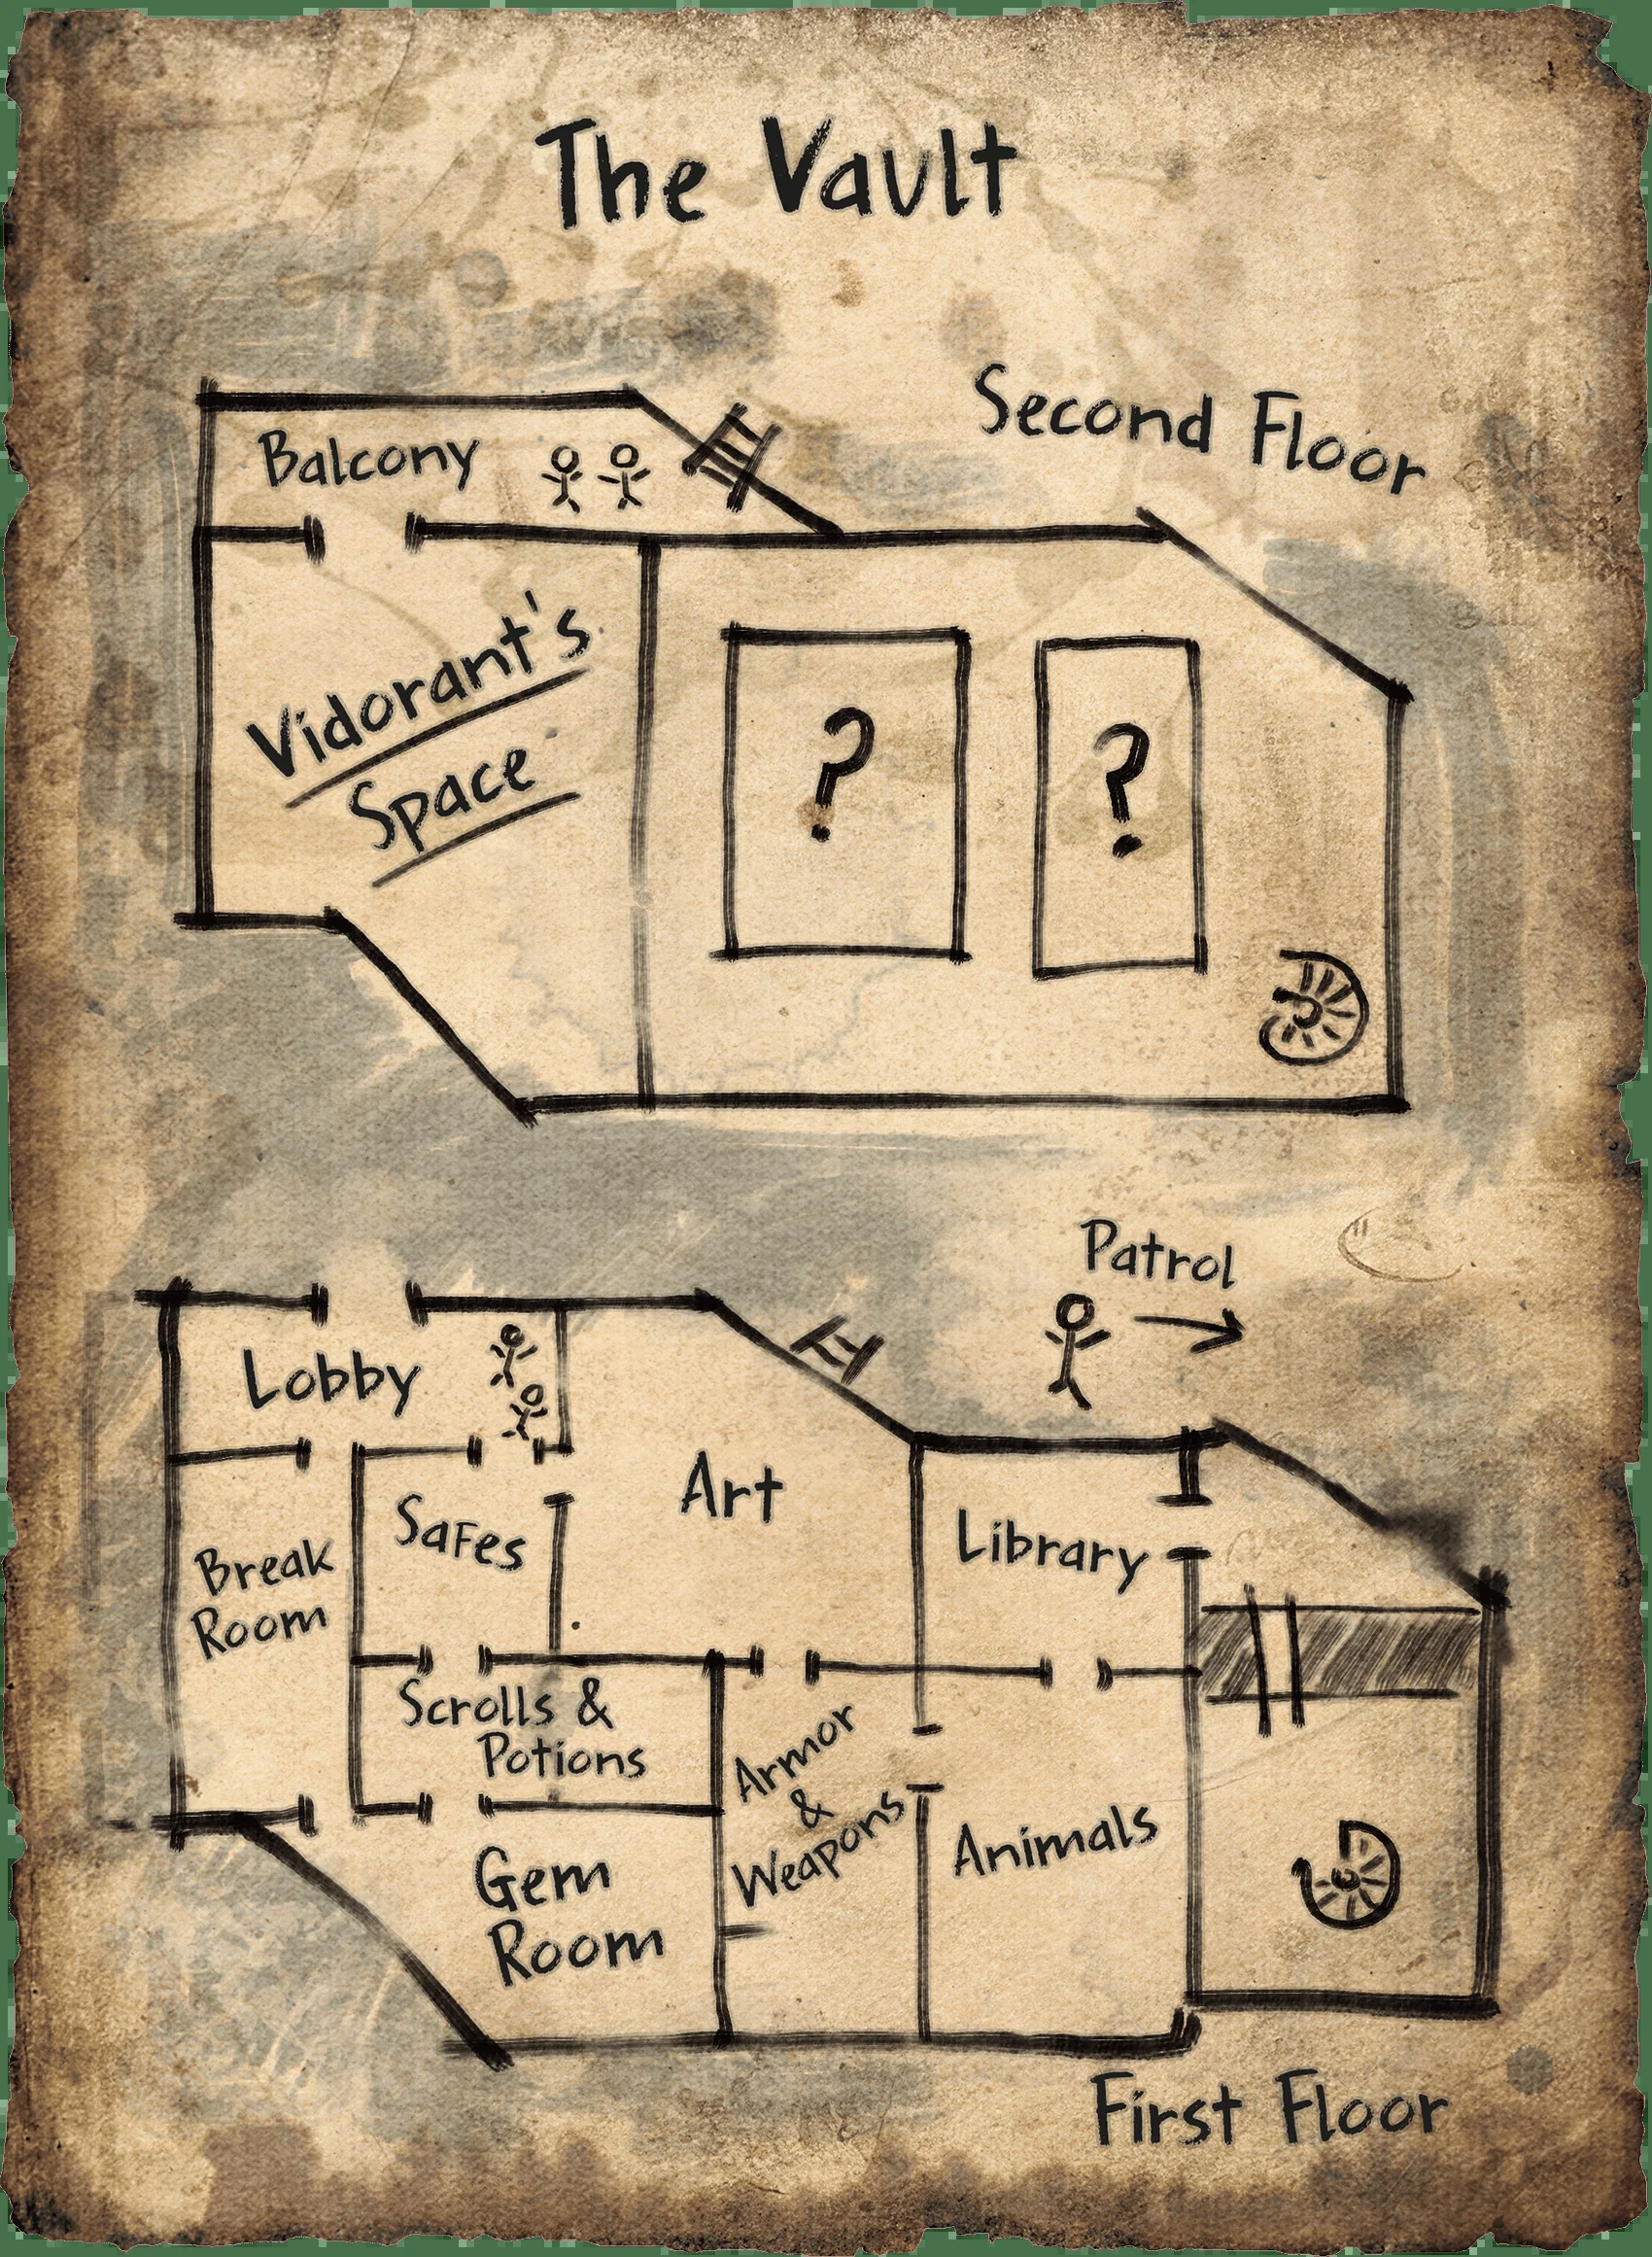 The Vault
Second Floor
Balcony
Vidorant's
Space
?
?
Patrol
Lobby
Art
Safes
Library
Break
Room
Scrolls &
Potions
Armor
&
Weapons
Animals
Gem
Room
First Floor